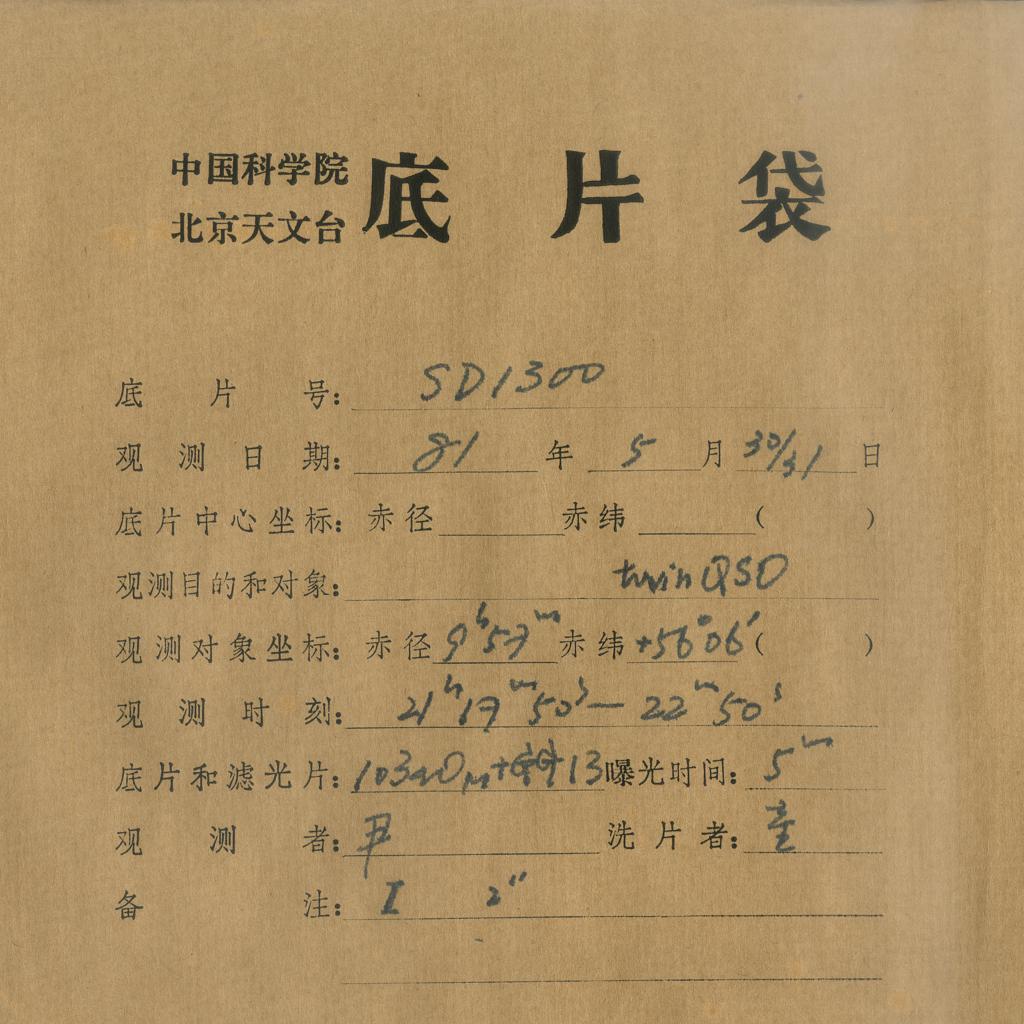 中国科学院
北京天文台
底片袋
底片号：SD1300
观测日期：81年5月30/31日
底片中心坐标：赤径 赤纬 （ ）
观测目的和对象：twin QSO
观测对象坐标：赤径9h57m赤纬+56°06′（ ）
观测时刻：21h17m50s—22m50s
底片和滤光片：13曝光时间：5m
观测者：尹 洗片者：童
备注：I 2″